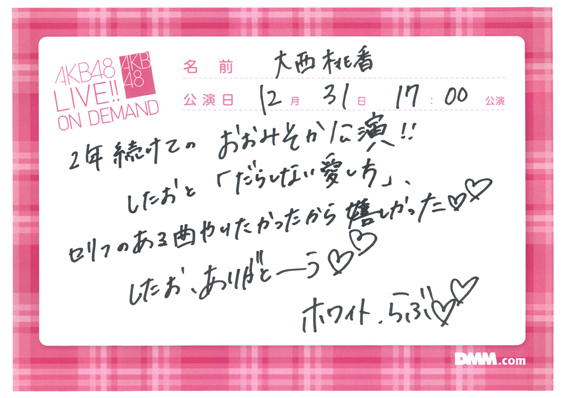 AKB48
LIVE!!
ON DEMAND
AKB
48
名 前 大西桃香
公演日 12月 31日 17:00 公演
2年続けての おおみそか公演!!
したおと「だらしない愛し方」、
ロリフのある曲やりたかったから嬉しかった♡♡
したお、ありがとーう♡♡
ホワイト、らぶ♡♡
DMM.com